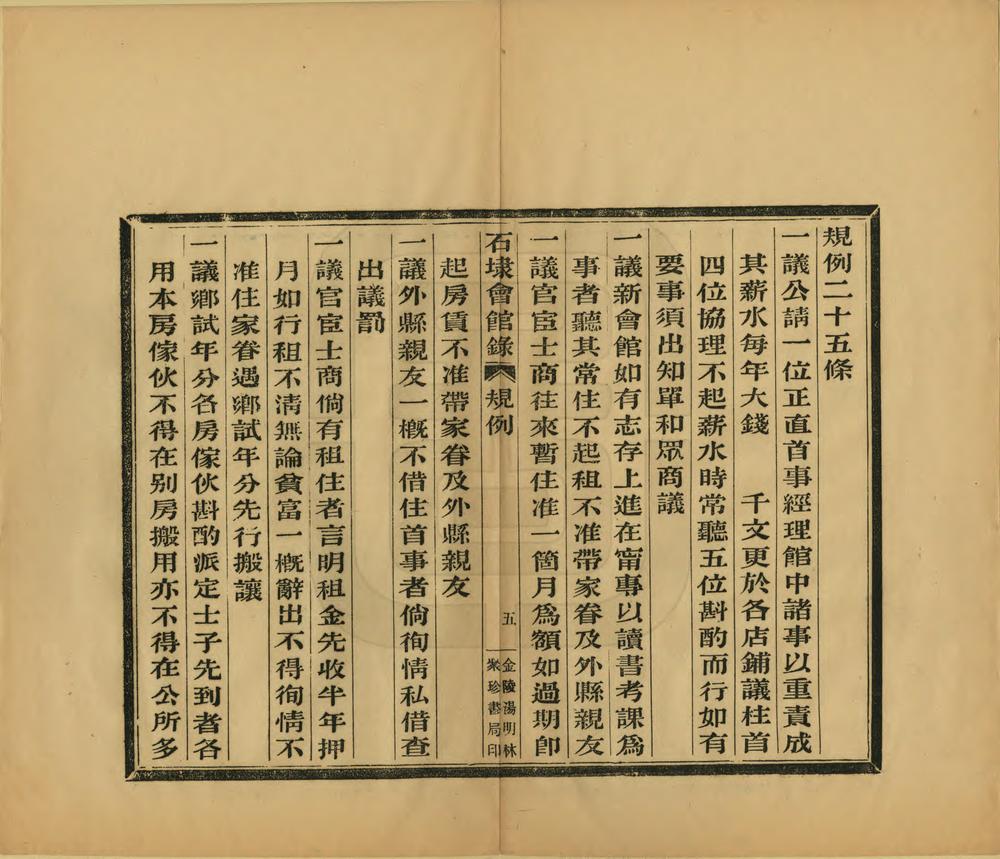 規例二十五條
一議公請一位正直首事經理館中諸事以重責成
其薪水每年大錢　　千文更於各店鋪議柱首
四位協理不起薪水時常聽五位斟酌而行如有
要事須出知單和眾商議
一議新會館如有志存上進在甯專以讀書考課為
事者聽其常住不起租不准帶家眷及外縣親友
一議官宦士商往來暫住准一箇月為額如過期卽
石埭會館錄 規例
五
金陵湯明林
聚珍書局印
起房賃不准帶家眷及外縣親友
一議外縣親友一概不借住首事者倘徇情私借查
出議罰
一議官宦士商倘有租住者言明租金先收半年押
月如行租不清無論貧富一概辭出不得徇情不
准住家眷遇鄉試年分先行搬讓
一議鄉試年分各房傢伙斟酌派定士子先到者各
用本房傢伙不得在别房搬用亦不得在公所多